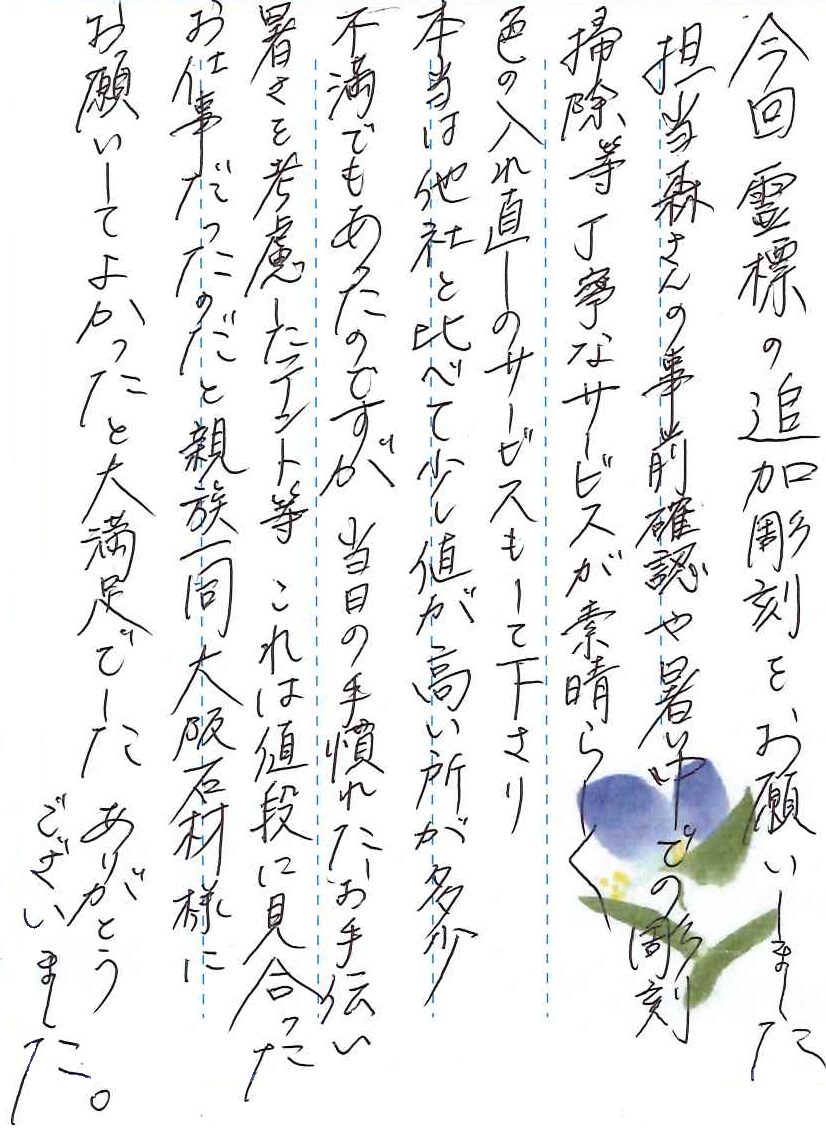 今回霊標の追加彫刻をお願いしました
担当森さんの事前確認や暑い中での彫刻
掃除等丁寧なサービスが素晴らしく
色の入れ直しのサービスもして下さり
本当は他社と比べて少し値が高い所が多少
不満でもあったのですが 当日の手慣れたお手伝い
暑さを考慮したテント等 これは値段に見合った
お仕事だったのだと親族一同大阪石材様に
お願いしてよかったと大満足でした ありがとう
ございました。